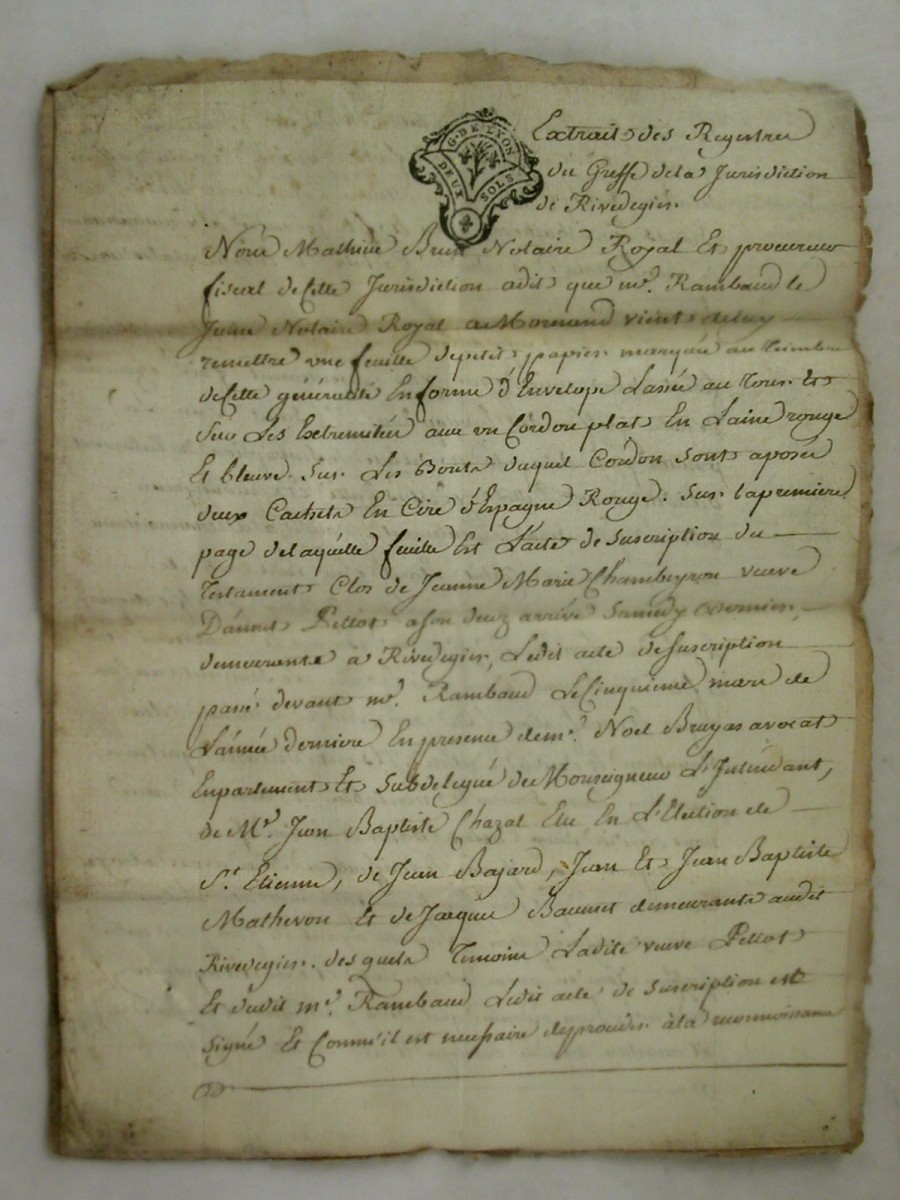 G. DE LYON
DEUX SOLS
Extrait des Registres
du Greffe de la Jurisdiction
de Rivedegier.
Mathieu Brun Notaire Royal Et procureur
fiscal de Cette Jurisdiction a dit que me. Rambaud le
Jeune Notaire Royal a Mornand vient de luy
remettre une feuille de petit papier marquée au timbre
de Cette généralité En forme d'Envelope Lassée au tour Et
Sur Les Extremitéz avec un Cordon plat En Laine rouge
Et bleuve. Sur Les Bouts duquel Cordon sont aposéz
deux Cachets En Cire d'Espagne Rouge. Sur la premiere
page de laquelle feuille Est L'acte de Suscription du
Testament Clos de Jeanne Marie Chambeyron veuve
Pellot a son deuz arrivé Samedy dernier
demeurante à Rivedegier, Ledit acte de Suscription
passé devant me. Rambaud Le Cinquieme mars de
L'année derniere En presence de me. Noel Bruyas avocat
En parlement Et Subdelegué de Monseigneur L'Intendant,
de Mr. Jean Baptiste Chazal Elu En L'Election de
St. Etienne, de Jean Bajard, Jean Et Jean Baptiste
Mathevon Et de Jacques demeurants audit
Rivedegier. des quels temoins Ladite veuve Pellot
Et dudit me. Rambaud Ledit acte de Suscription est
Signé Et Comm'il est necessaire de proceder à la reconnoissance